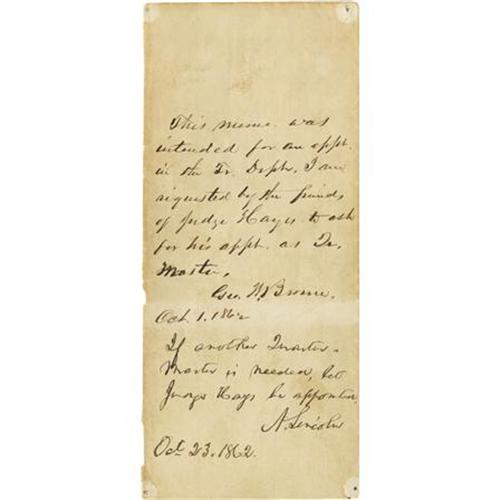 This name was
intended for an appt.
in the Tr. Dept. I am
requested by the friends
of Judge Hays to ask
for his appt. as Qr.
Master.
Geo. H. Browne.
Oct. 1. 1862
If another Quarter-
Master is needed, let
Judge Hays be appointed
A. Lincoln
Oct. 23. 1862.